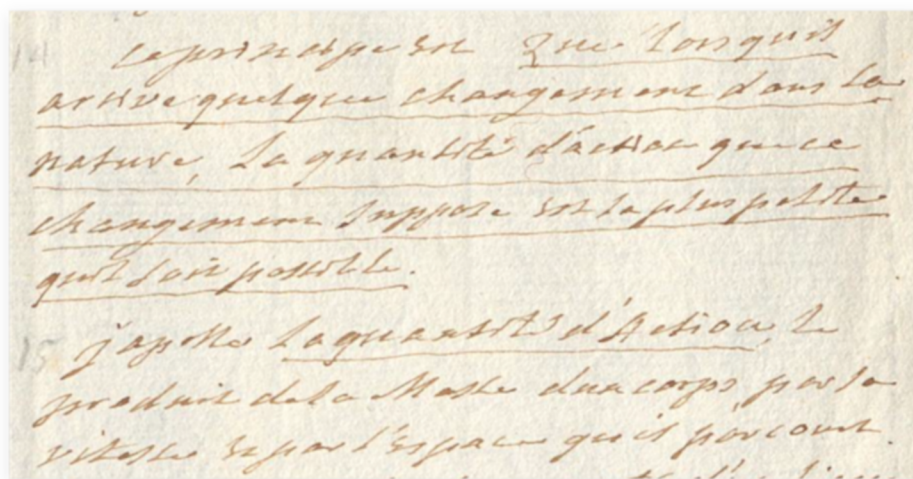 14 Le principe est que lors quil
arrive quelque changement dans la
nature, la quantité d'action que ce
changement suppose est la plus petite
quil soit possible.
15 j'apelle la quantité d'Action, le
produit de la Masse d'un corps par la
vitesse et par l'Espace qu'il parcourt.